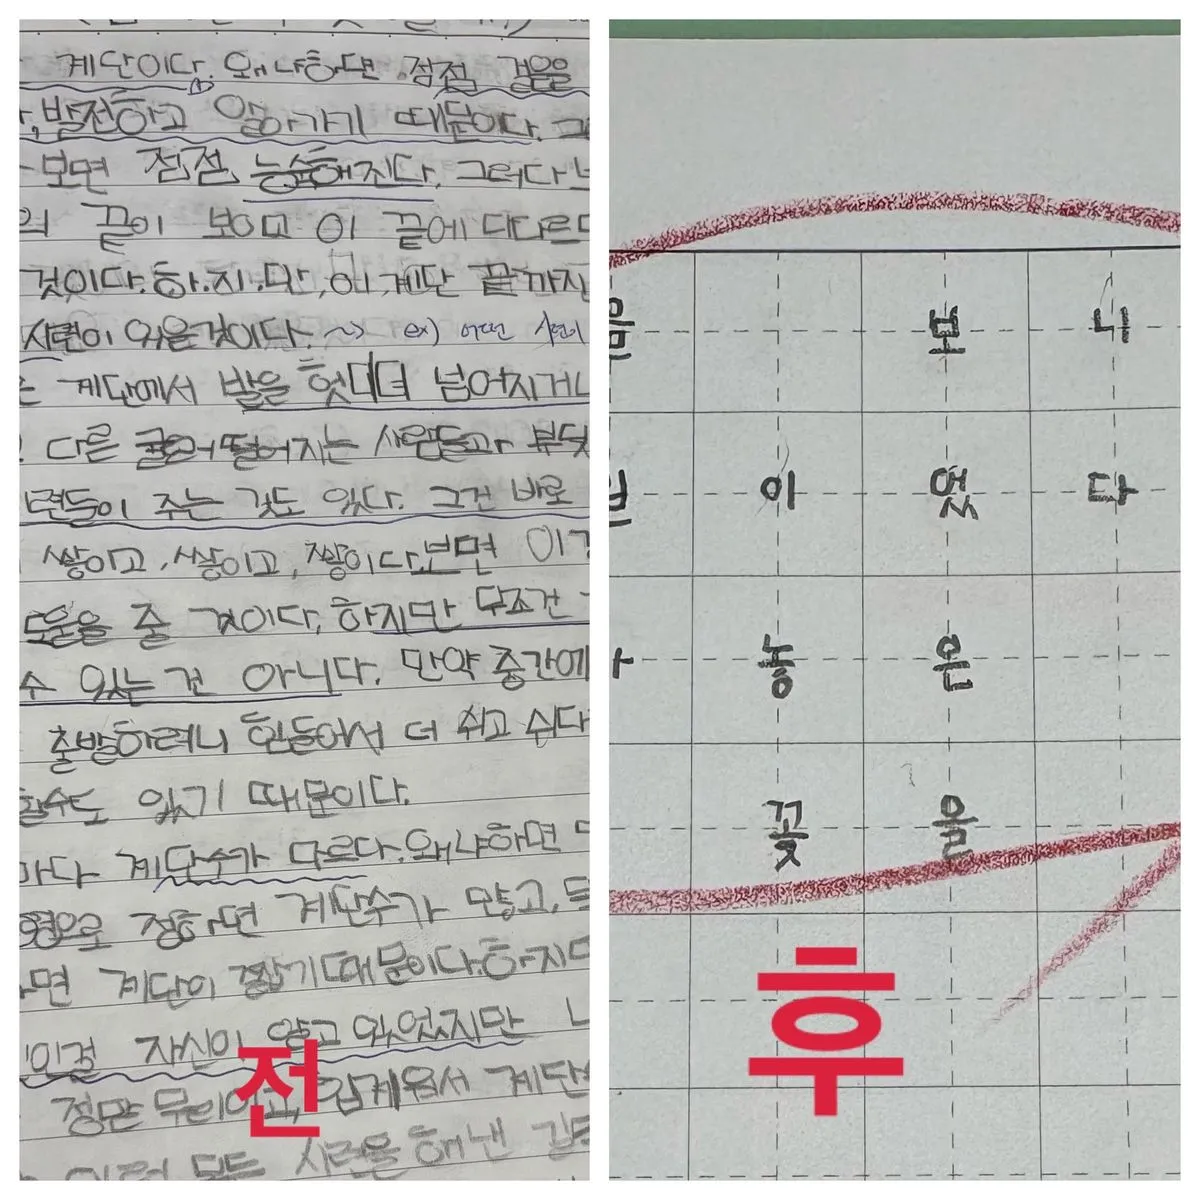 계단이다. 왜냐하면 점점 걸음을
발전하고 알아가기 때문이다.
보면 점점 능숙해진다. 그러다
끝이 보이고 이 끝에 다다르
것이다. 하.지.만, 이 계단 끝까지
시련이 있을것이다. ~> ex) 어떤 시련이
계단에서 발을 헛디뎌 넘어지거나
다른 굴러떨어지는 사람들과 부딪
련들이 주는 것도 있다. 그건 바로
쌓이고, 쌓이고, 쌓이다보면
도움을 줄 것이다. 하지만 무조건
수 있는 건 아니다. 만약 중간에
출발하려니 힘들어서 더 쉬고 싶다
할수도 있기 때문이다.
마다 계단수가 다르다. 왜냐하면
형으로 정하면 계단수가 많고,
면 계단이 짧기때문이다. 하지
이걸 자신이 알고 있었지만
정말 무리이고, 힘겨워서 계단
이런 모든 시련을 해낸
전
보 니
이 었 다
놓 은
꽃 을
후